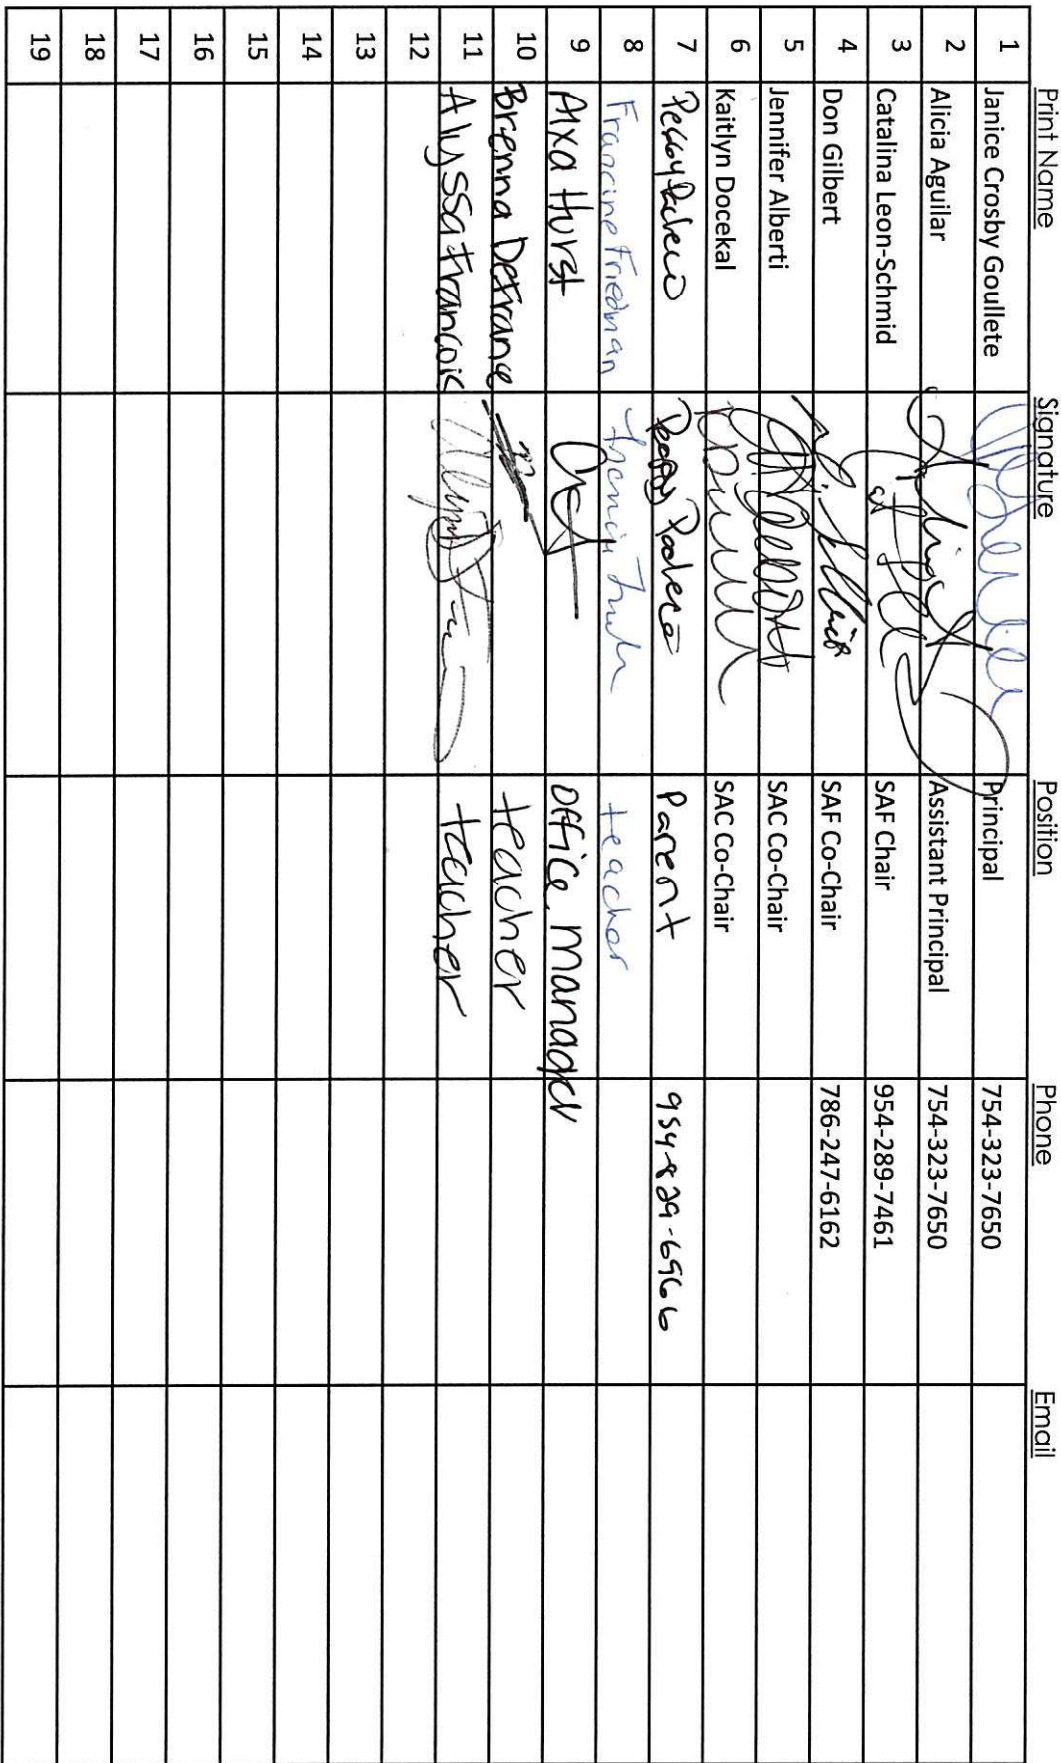 Print Name Signature Position Phone Email
1 Janice Crosby Goullete Principal 754-323-7650
2 Alicia Aguilar Assistant Principal 754-323-7650
3 Catalina Leon-Schmid SAF Chair 954-289-7461
4 Don Gilbert SAF Co-Chair 786-247-6162
5 Jennifer Alberti SAC Co-Chair
6 Kaitlyn Docekal SAC Co-Chair
7 Peggy Parent 954-829-6966
8 Francine Friedman teacher
9 Aixa Hurst Office Manager
10 Brenna Defrance teacher
11 Alyssa Francois teacher
12
13
14
15
16
17
18
19